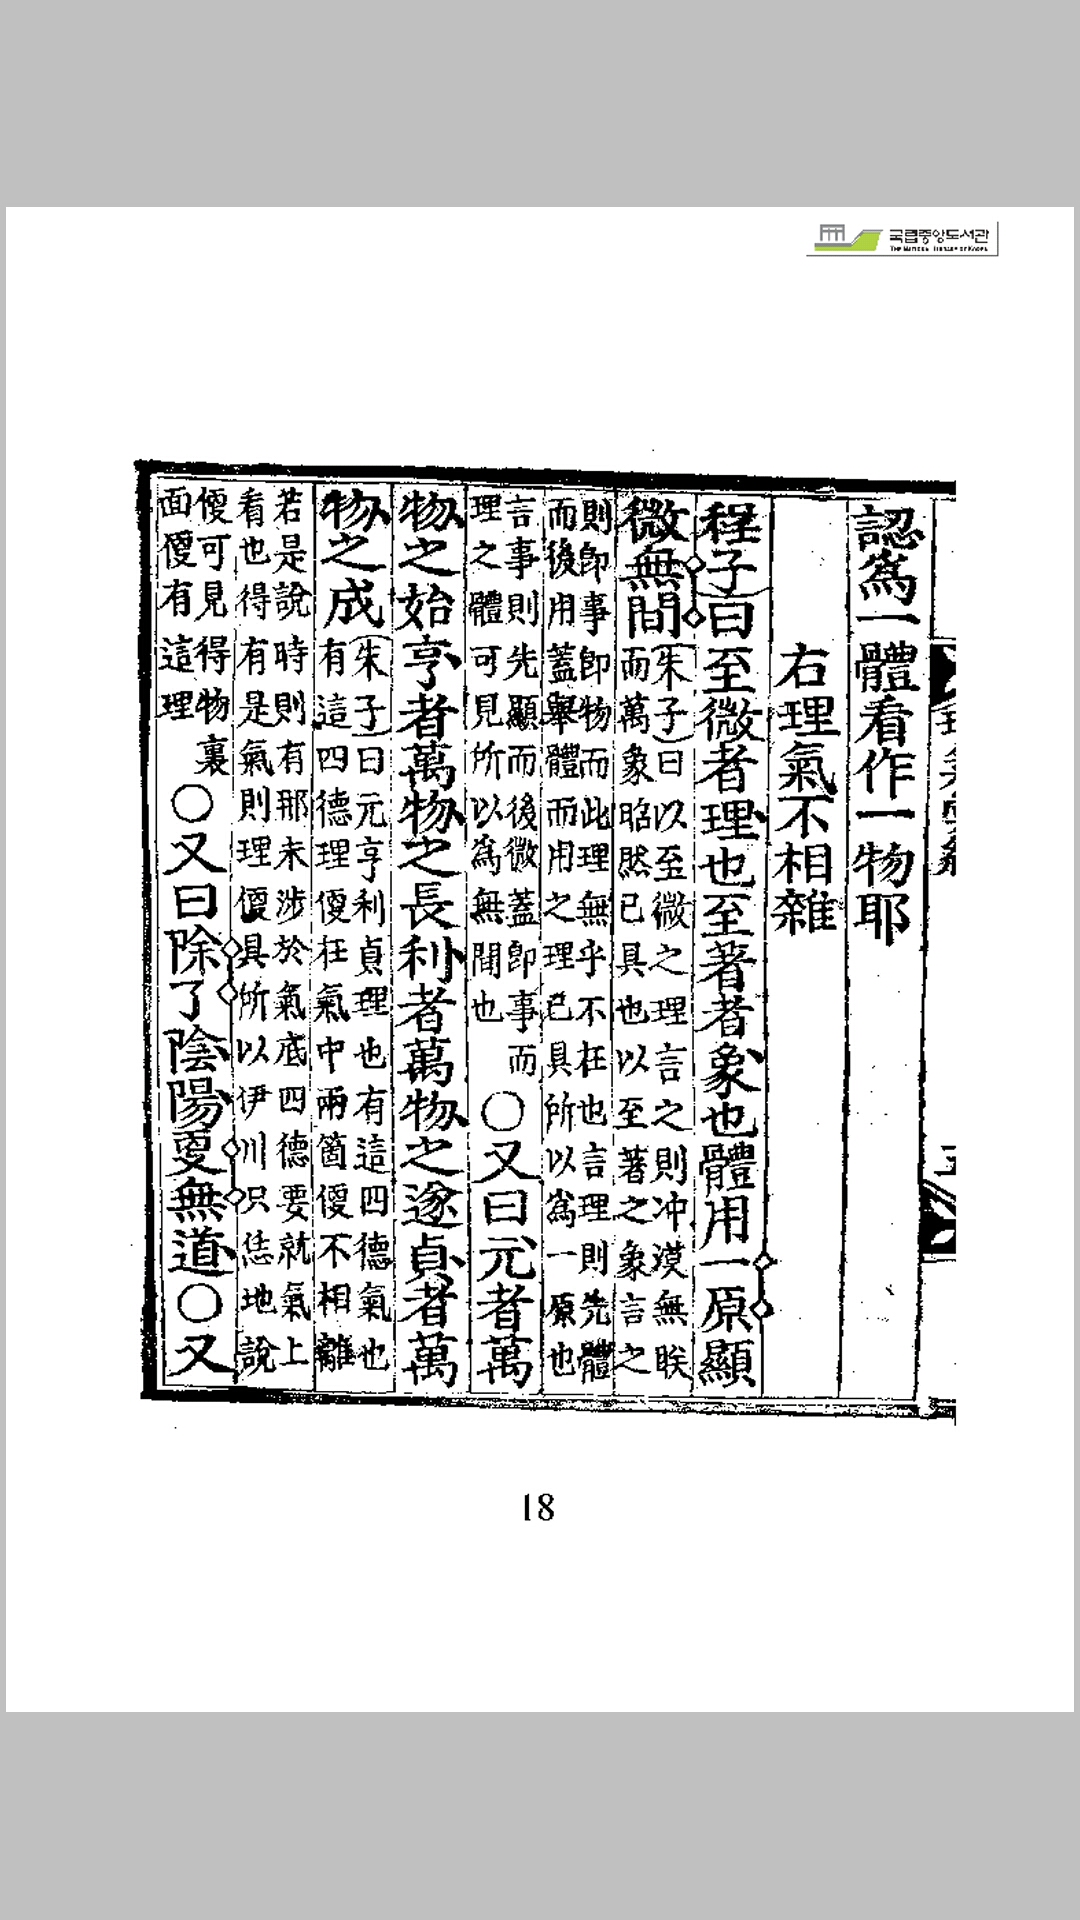 국립중앙도서관
THE NATIONAL LIBRARY OF KOREA
認爲一體看作一物耶
右理氣不相雜
程子曰至微者理也至著者象也體用一原顯
微無間
朱子曰以至微之理言之則沖漠無眹
而萬象昭然已具也以至著之象言之
則卽事卽物而此理無乎不在也言理則先體
而後用蓋擧體而用之理已具所以爲一原也
言事則先顯而後微蓋卽事而
理之體可見所以爲無間也
○又曰元者萬
物之始亨者萬物之長利者萬物之遂貞者萬
物之成
朱子曰元亨利貞理也有這四德氣也
有這四德理便在氣中兩箇便不相離
若是說時則有那未涉於氣底四德要就氣上
看也得有是氣則理便具所以伊川只恁地說
便可見得物裏
面便有這理
○又曰除了陰陽更無道○又
18